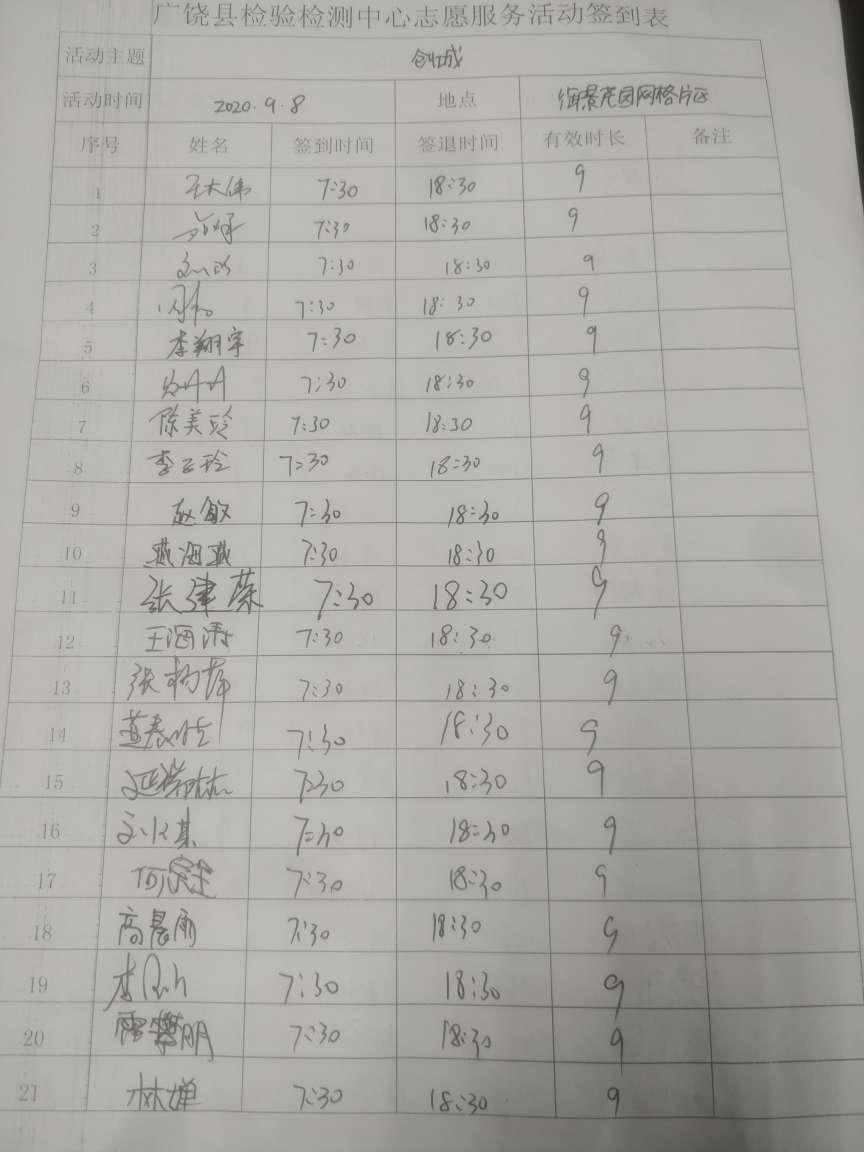 广饶县检验检测中心志愿服务活动签到表
活动主题 创城
活动时间 2020.9.8 地点 海景花园网格片区
序号 姓名 签到时间 签退时间 有效时长 备注
1 王大伟 7:30 18:30 9
2 7:30 18:30 9
3 7:30 18:30 9
4 7:30 18:30 9
5 李翔宇 7:30 18:30 9
6 7:30 18:30 9
7 陈美玲 7:30 18:30 9
8 李云玲 7:30 18:30 9
9 赵敏 7:30 18:30 9
10 燕海燕 7:30 18:30 9
11 张建荣 7:30 18:30 9
12 王海涛 7:30 18:30 9
13 张 7:30 18:30 9
14 7:30 18:30 9
15 7:30 18:30 9
16 7:30 18:30 9
17 7:30 18:30 9
18 高晨雨 7:30 18:30 9
19 李 7:30 18:30 9
20 7:30 18:30 9
21 林婵 7:30 18:30 9